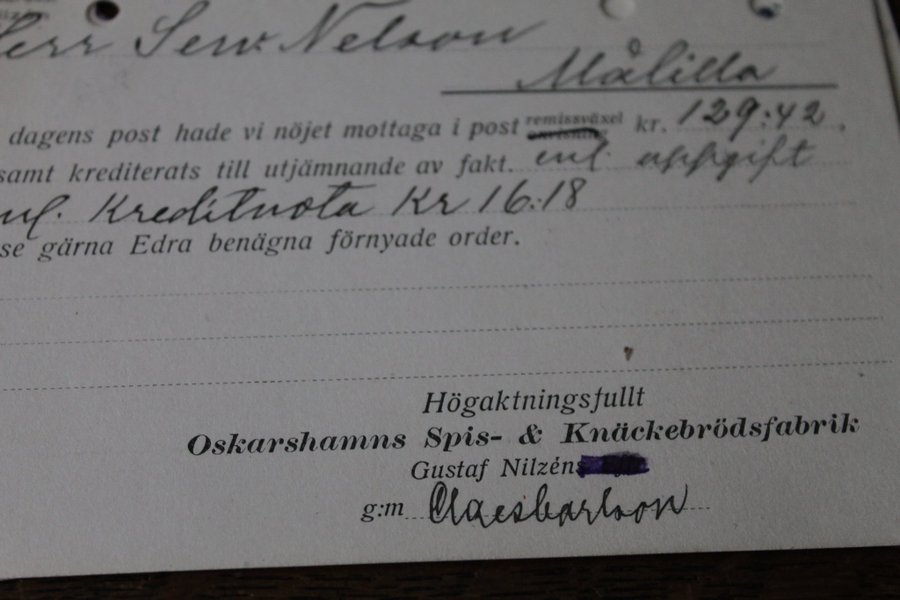 Herr Sew. Nelson
Målilla
dagens post hade vi nöjet mottaga i post remissväxel kr. 129:42.
samt krediterats till utjämnande av fakt. enl. uppgift
enl. Kreditnota Kr 16:18
se gärna Edra benägna förnyade order.
Högaktningsfullt
Oskarshamns Spis- & Knäckebrödsfabrik
Gustaf Nilzén
g:m Claesbarlson